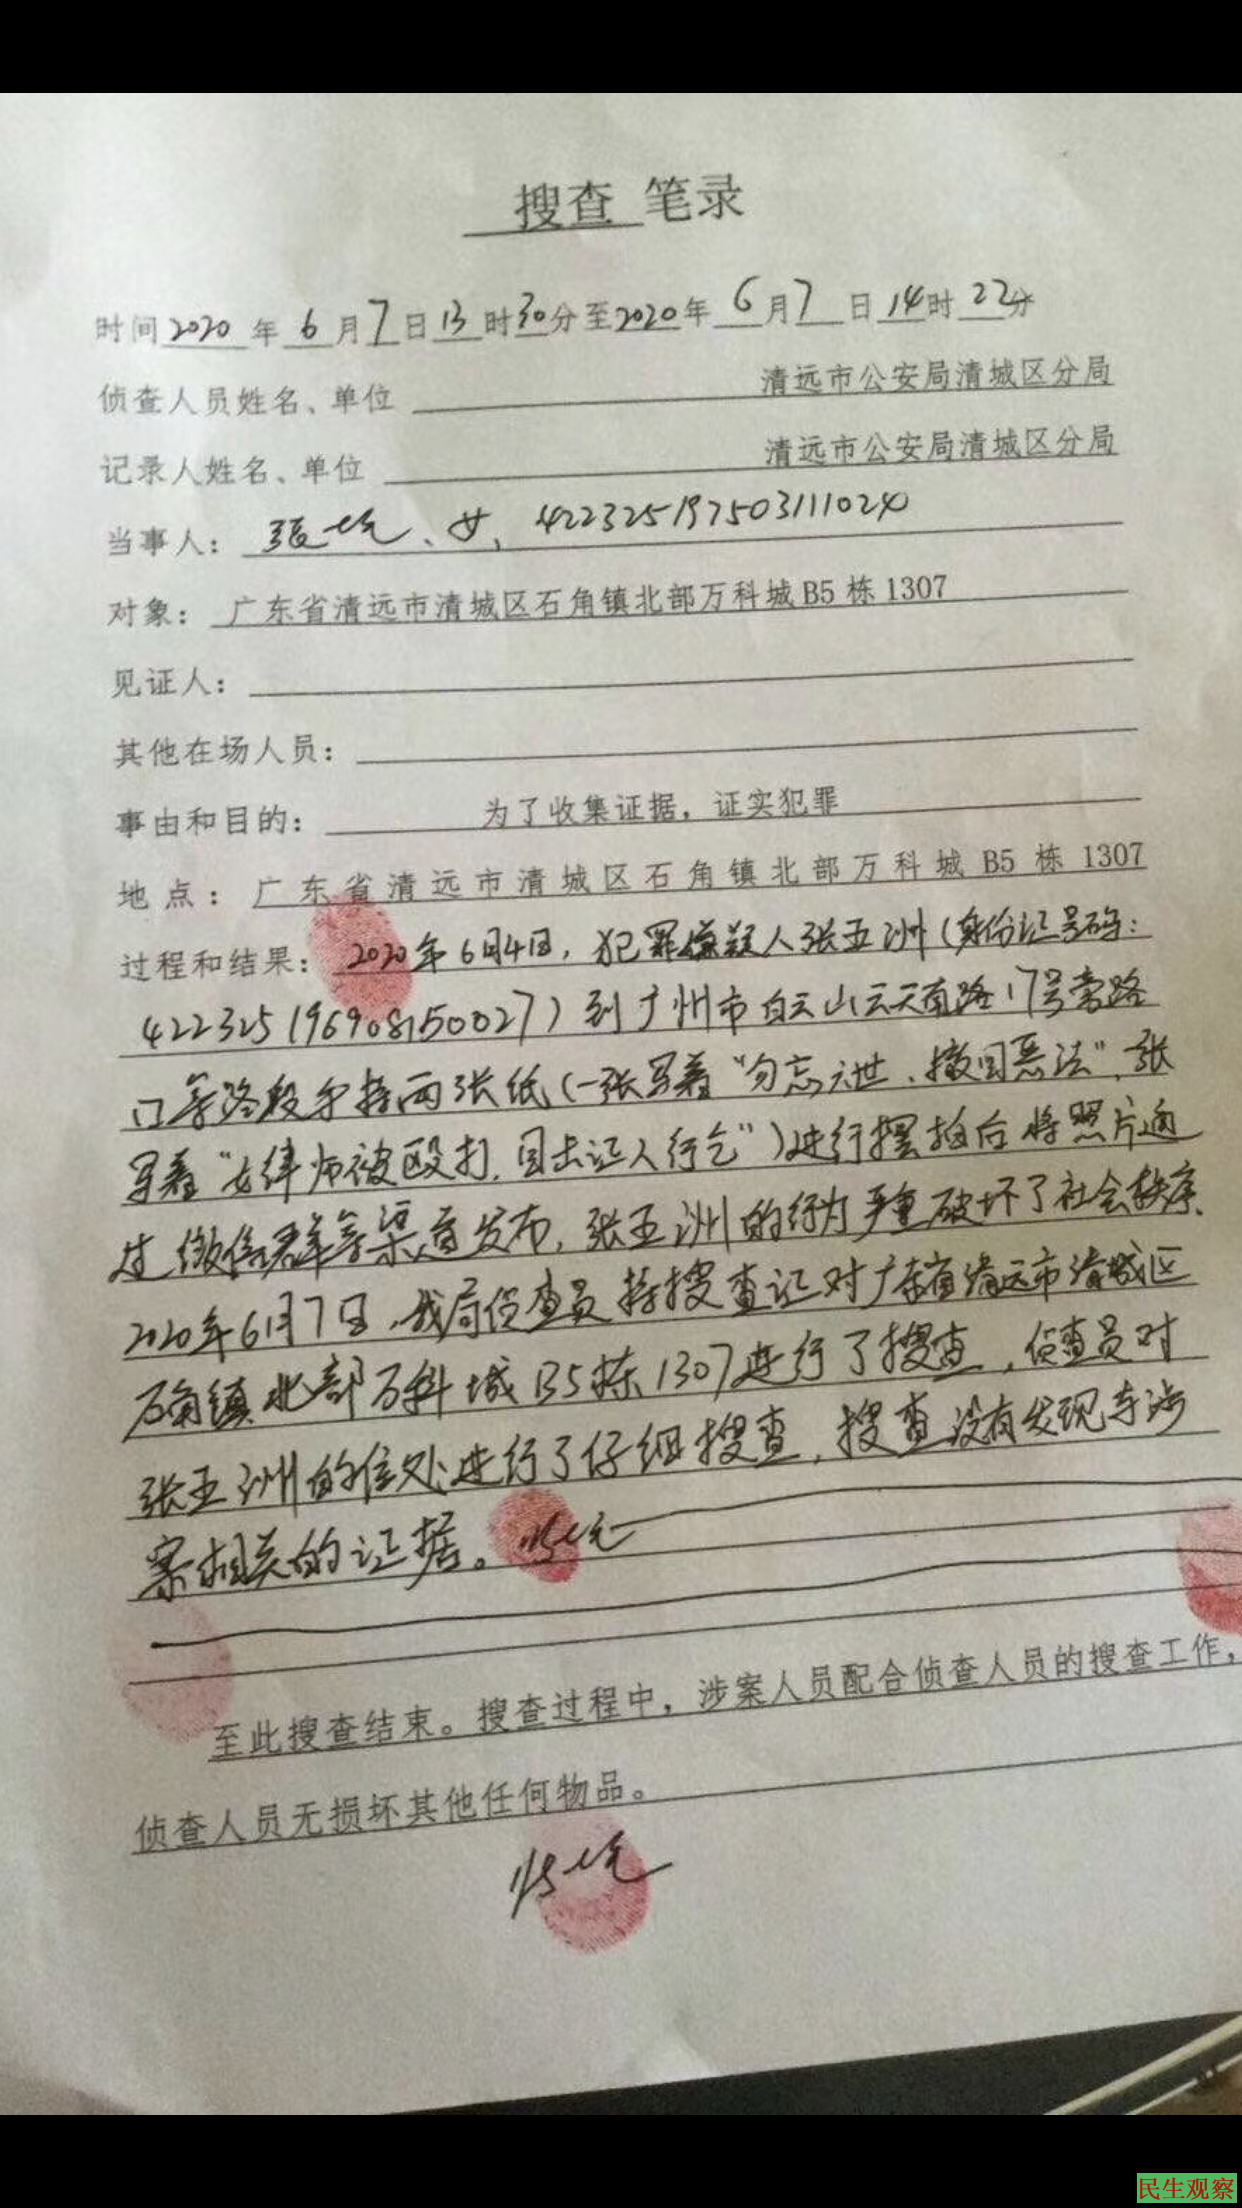 搜查 笔录
时间 2020 年 6 月 7 日 13 时 30 分 至 2020 年 6 月 7 日 14 时 22 分
侦查人员姓名、单位 清远市公安局清城区分局
记录人姓名、单位 清远市公安局清城区分局
当事人： 张 、女、422325197503111024
对象： 广东省清远市清城区石角镇北部万科城 B5 栋 1307
见证人：
其他在场人员：
事由和目的： 为了收集证据，证实犯罪
地点： 广东省清远市清城区石角镇北部万科城 B5 栋 1307
过程和结果： 2020年6月4日，犯罪嫌疑人张五洲（身份证号码：
422325196908150027）到广州市白云山云天南路17号旁路
口等路段手持两张纸（一张写着“勿忘六四、撤回恶法”，张
写着“女律师被殴打，目击证人行乞”）进行摆拍后将照片通
过微信群等渠道发布，张五洲的行为严重破坏了社会秩序，
2020年6月7日，我局侦查员持搜查证对广东省清远市清城区
石角镇北部万科城B5栋1307进行了搜查，侦查员对
张五洲的住处进行了仔细搜查，搜查没有发现与涉
案相关的证据。
至此搜查结束。搜查过程中，涉案人员配合侦查人员的搜查工作，
侦查人员无损坏其他任何物品。
民生观察